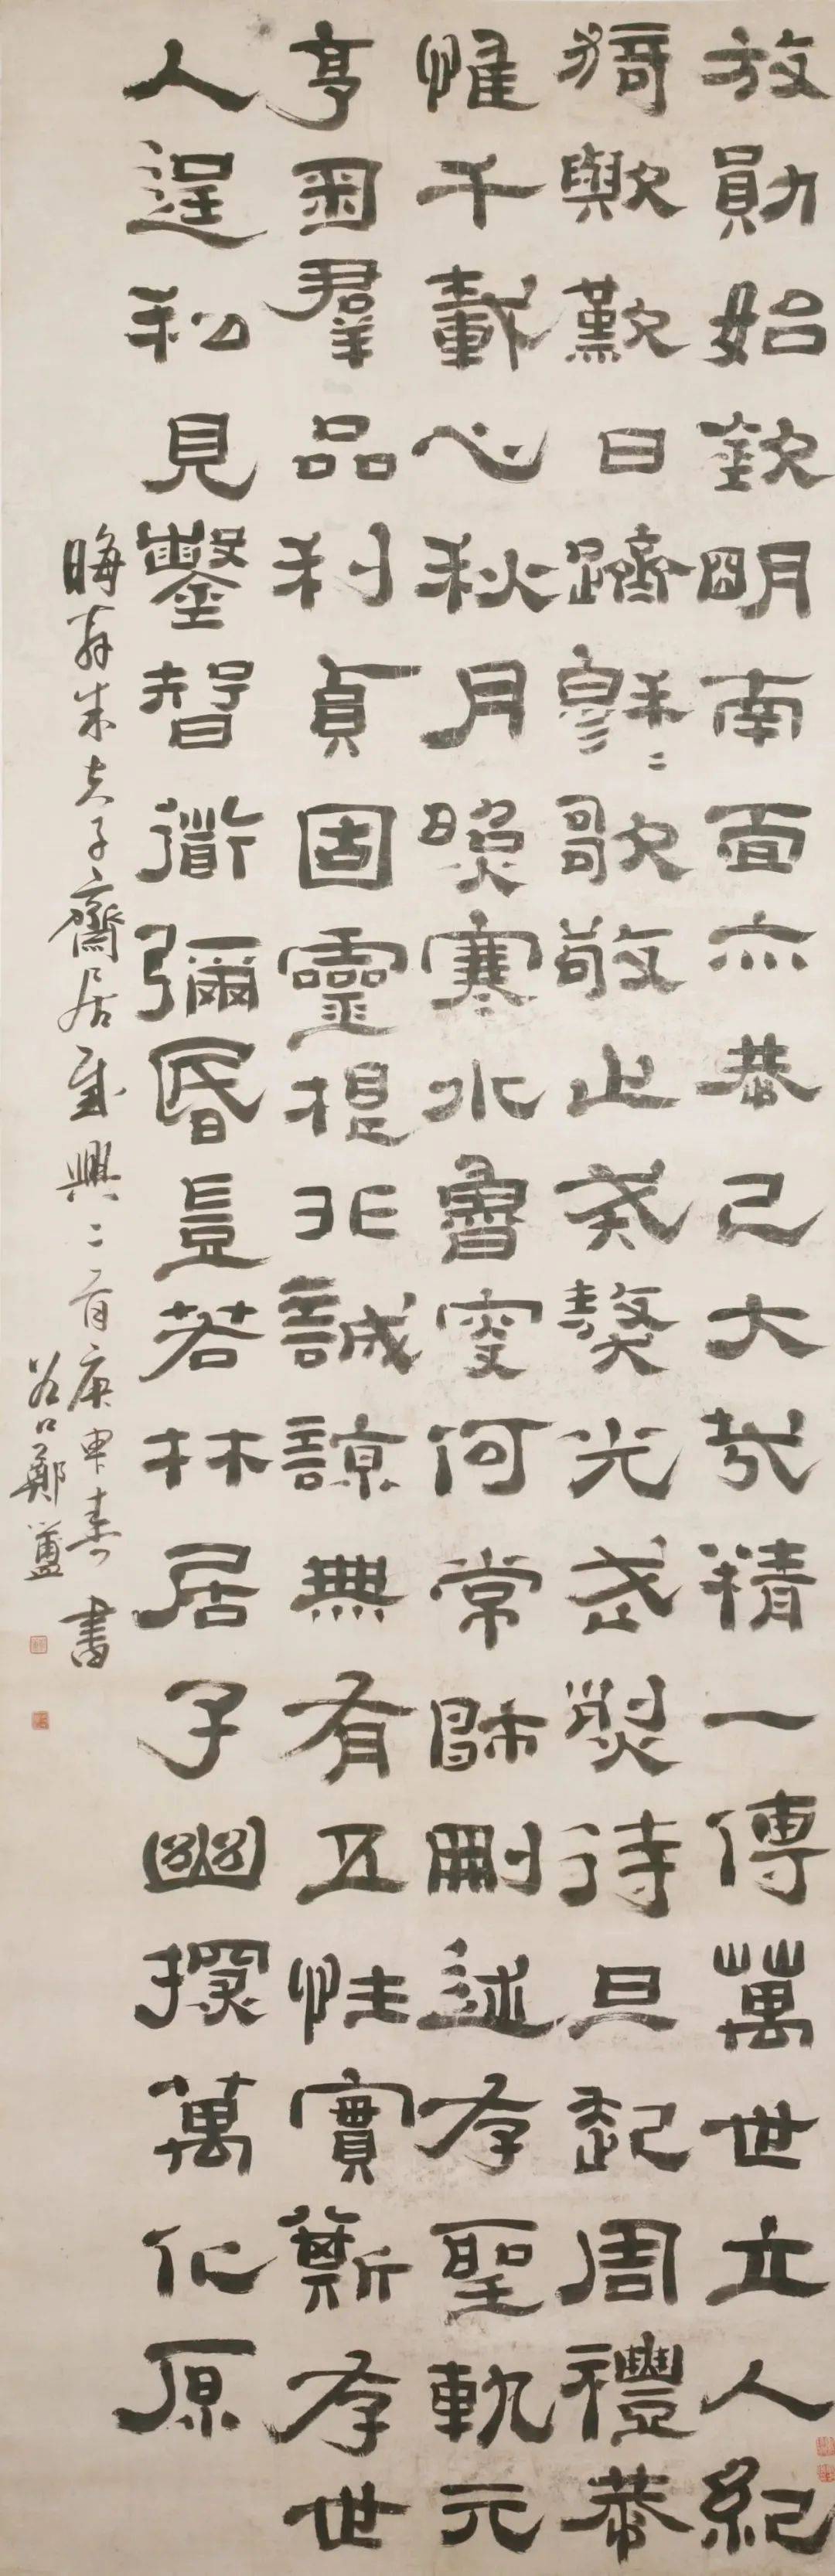 放勛始欽明南面亦恭己大哉精一傳萬世立人紀
猗歟歎日躋穆〻歌敬止戒獒光武烈待旦起周禮恭
惟千載心秋月照寒水魯叟何常師刪述存聖軌元
亨圀羣品利貞固靈根非誠諒無有五性實斯存世
人逞私見鑿智道彌昏豈若林居子幽探萬化原
晦菴朱夫子齋居感興二首庚申春書
谷口鄭簠